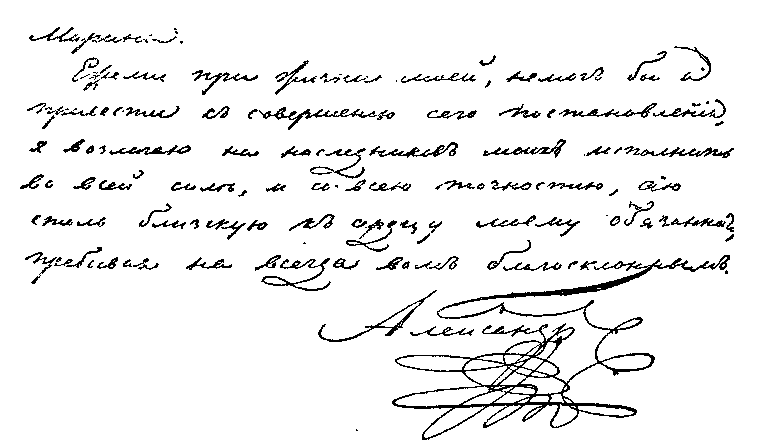 Марина.
Ежели при жизни моей, немогъ бы я
привести къ совершению сего постановлений,
я возлагаю на наследниковъ моихъ исполнить
во всей силѣ, и со всею точностию, сію
столь близкую къ сердцу моему обязанность,
пребывая на всегда вамъ благосклоннымъ.
Александръ